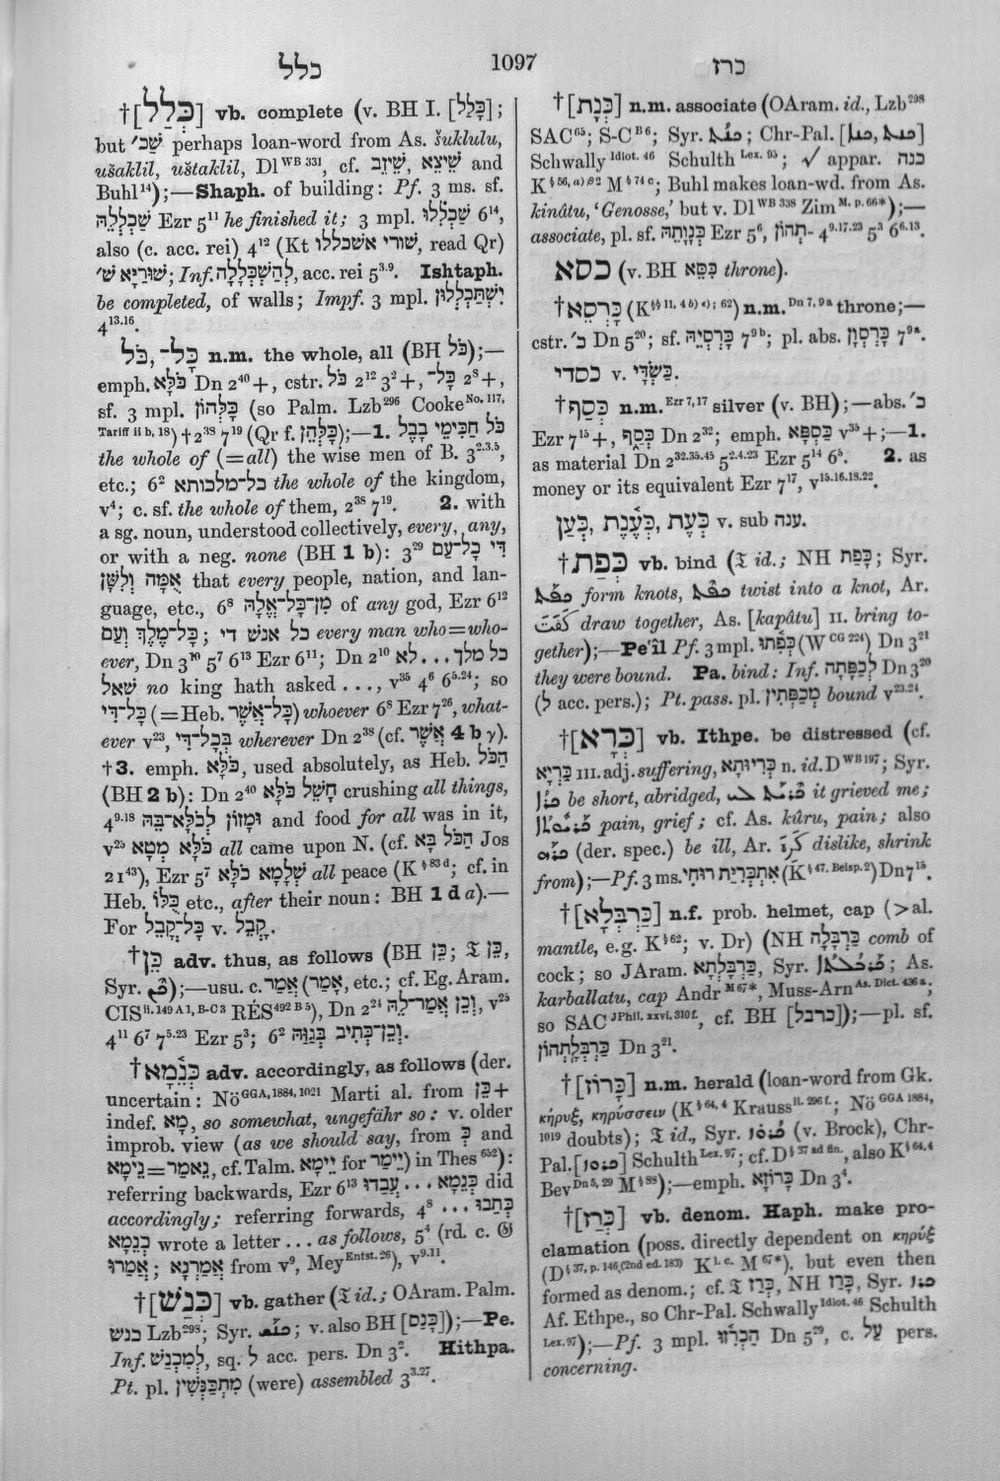 כלל 1097 כרז
†[כְּלַל] vb. complete (v. BH I. [כָּלַל];
but שַׁכ׳ perhaps loan-word from As. šuklulu,
ušaklil, uštaklil, Dl WB 331, cf. שֵׁיצִא, שֵׁיזִב and
Buhl¹⁴);—Shaph. of building: Pf. 3 ms. sf.
שַׁכְלְלֵהּ Ezr 5¹¹ he finished it; 3 mpl. שַׁכְלִלוּ 6¹⁴,
also (c. acc. rei) 4¹² (Kt שורי אשכללו, read Qr)
שׁוּרַיָּא שׁ׳; Inf. לְהַשְׁכְּלָלָה, acc. rei 5³·⁹. Ishtaph.
be completed, of walls; Impf. 3 mpl. יִשְׁתַּכְלְלוּן
4¹³·¹⁶.
כֹּל, כָּל־ n.m. the whole, all (BH כֹּל);—
emph. כֹּלָּא Dn 2⁴⁰+, cstr. כֹּל 2¹² 3²+, כָּל־ 2⁸+,
sf. 3 mpl. כָּלְּהוֹן (so Palm. Lzb²⁹⁶ Cooke No. 117,
Tariff ii b, 18) †2³⁸ 7¹⁹ (Qr f. כָּלְּהֵן);—1. כֹּל חַכִּימֵי בָבֶל
the whole of (=all) the wise men of B. 3²·³·⁵,
etc.; 6² כל־מלכותא the whole of the kingdom,
v⁴; c. sf. the whole of them, 2³⁸ 7¹⁹. 2. with
a sg. noun, understood collectively, every, any,
or with a neg. none (BH 1 b): 3²⁹ דִּי כָל־עַם
אֻמָּה וְלִשָּׁן that every people, nation, and lan-
guage, etc., 6⁸ מִן־כָּל־אֱלָהּ of any god, Ezr 6¹²
כָּל־מֶלֶךְ וְעַם; כל אנש די every man who=who-
ever, Dn 3¹⁰ 5⁷ 6¹³ Ezr 6¹¹; Dn 2¹⁰ כל מלך...לא
שאל no king hath asked ..., v³⁵ 4⁶ 6⁵·²⁴; so
כָּל־דִּי (=Heb. כָּל־אֲשֶׁר) whoever 6⁸ Ezr 7²⁶, what-
ever v²³, בְּכָל־דִּי wherever Dn 2³⁸ (cf. אֲשֶׁר 4 b γ).
†3. emph. כֹּלָּא, used absolutely, as Heb. הַכֹּל
(BH 2 b): Dn 2⁴⁰ חָשֵׁל כֹּלָּא crushing all things,
4⁹·¹⁸ וּמָזוֹן לְכֹלָּא־בֵהּ and food for all was in it,
v²⁵ כֹּלָּא מְטָא all came upon N. (cf. הַכֹּל בָּא Jos
21⁴³), Ezr 5⁷ שְׁלָמָא כֹלָּא all peace (K §83d; cf. in
Heb. כֻּלּוֹ etc., after their noun: BH 1 d a).—
For כָּל־קֳבֵל v. קֳבֵל.
†כֵּן adv. thus, as follows (BH כֵּן; 𝔗 כֵּן,
Syr. );—usu. c. אֲמַר (אָמַר, etc.; cf. Eg. Aram.
CIS ii. 149 A 1, B-C 3 RÉS 492 B 5), Dn 2²⁴ וְכֵן אֲמַר־לֵהּ, v²⁵
4¹¹ 6⁷ 7⁵·²³ Ezr 5³; 6² וְכֵן־כְּתִיב בְּגַוַּהּ.
†כְּנֵמָא adv. accordingly, as follows (der.
uncertain: Nö GGA, 1884, 1021 Marti al. from כֵּן+
indef. מָא, so somewhat, ungefähr so: v. older
improb. view (as we should say, from כְּ and
נֵימָא=נֵאמַר, cf. Talm. יֵימָא for יֵימַר) in Thes⁶⁵²):
referring backwards, Ezr 6¹³ כְּנֵמָא ... עֲבַדוּ did
accordingly; referring forwards, 4⁸ כְּתַבוּ ...
כְּנֵמָא wrote a letter ... as follows, 5⁴ (rd. c. 𝔊
אֲמַרוּ; אֲמַרְנָא from v⁹, Mey Entst. 26), v⁹·¹¹.
†[כְּנַשׁ] vb. gather (𝔗 id.; OAram. Palm.
כנש Lzb²⁹⁸; Syr. ܟܢܫ; v. also BH [כָּנַס]);—Pe.
Inf. לְמִכְנַשׁ, sq. לְ acc. pers. Dn 3². Hithpa.
Pt. pl. מִתְכַּנְּשִׁין (were) assembled 3³·²⁷.
†[כְּנָת] n.m. associate (OAram. id., Lzb²⁹⁸
SAC⁶⁵; S-C B 6; Syr. ܟܢܬ; Chr-Pal. []
Schwally Idiot. 46 Schulth Lex. 95; √ appar. כנה
K § 56, a) β 2 M § 74 c; Buhl makes loan-wd. from As.
kinâtu, ‘Genosse,’ but v. Dl WB 338 Zim M. p. 66*);—
associate, pl. sf. כְּנָוָתֵהּ Ezr 5⁶, ־תְהוֹן 4⁹·¹⁷·²³ 5³ 6⁶·¹³.
כסא (v. BH כִּסֵּא throne).
†כָּרְסֵא (K §§ 11, 4 b) ε); 62) n.m. Dn 7, 9 a throne;—
cstr. כ׳ Dn 5²⁰; sf. כָּרְסְיֵהּ 7⁹ᵇ; pl. abs. כָּרְסָוָן 7⁹ᵃ.
כסדי v. כַּשְׂדָּי.
†כְּסַף n.m. Ezr 7, 17 silver (v. BH);—abs. כ׳
Ezr 7¹⁵+, כְּסַף Dn 2³²; emph. כַּסְפָּא v³⁵+;—1.
as material Dn 2³²·³⁵·⁴⁵ 5²·⁴·²³ Ezr 5¹⁴ 6⁵. 2. as
money or its equivalent Ezr 7¹⁷, v¹⁵·¹⁶·¹⁸·²².
כְּעֶת, כְּעֶנֶת, כְּעַן v. sub ענה.
†כְּפַת vb. bind (𝔗 id.; NH כָּפַת; Syr.
form knots, twist into a knot, Ar.
كفت draw together, As. [kapâtu] II. bring to-
gether);—Pe‘îl Pf. 3 mpl. כְּפִתוּ (W CG 224) Dn 3²¹
they were bound. Pa. bind: Inf. לְכַפָּתָה Dn 3²⁰
(לְ acc. pers.); Pt. pass. pl. מְכַפְּתִין bound v²³·²⁴.
†[כְּרָא] vb. Ithpe. be distressed (cf.
כָּרְיָא III. adj. suffering, כְּרִיוּתָא n. id. D WB 197; Syr.
be short, abridged, it grieved me;
pain, grief; cf. As. kûru, pain; also
(der. spec.) be ill, Ar. dislike, shrink
from);—Pf. 3 ms. אֶתְכְּרִיַּת רוּחִי (K § 47. Beisp. 2) Dn 7¹⁵.
†[כַּרְבְּלָא] n.f. prob. helmet, cap (>al.
mantle, e.g. K § 62; v. Dr) (NH כַּרְבָּלָה comb of
cock; so JAram. כַּרְבַּלְתָּא, Syr. ; As.
karballatu, cap Andr M 67*, Muss-Arn As. Dict. 436 a;
so SAC JPhil. xxvi. 310 f., cf. BH [כרבל]);—pl. sf.
כַּרְבְּלָתְהוֹן Dn 3²¹.
†[כָּרוֹז] n.m. herald (loan-word from Gk.
κήρυξ, κηρύσσειν (K § 64, 4 Krauss ii. 296 f.; Nö GGA 1884,
1019 doubts); 𝔗 id., Syr. ܟܪܘܙܐ (v. Brock), Chr-
Pal. [] Schulth Lex. 97; cf. D § 37 ad fin., also K § 64. 4
Bev Dn 5, 29 M § 88);—emph. כָּרוֹזָא Dn 3⁴.
†[כְּרַז] vb. denom. Haph. make pro-
clamation (poss. directly dependent on κηρύξ
(D § 37, p. 146, (2nd ed. 183) K l. c. M 67*), but even then
formed as denom.; cf. 𝔗 כְּרַז, NH כָּרַז, Syr. ܟܪܙ
Af. Ethpe., so Chr-Pal. Schwally Idiot. 46 Schulth
Lex. 97);—Pf. 3 mpl. הַכְרִזוּ Dn 5²⁹, c. עַל pers.
concerning.